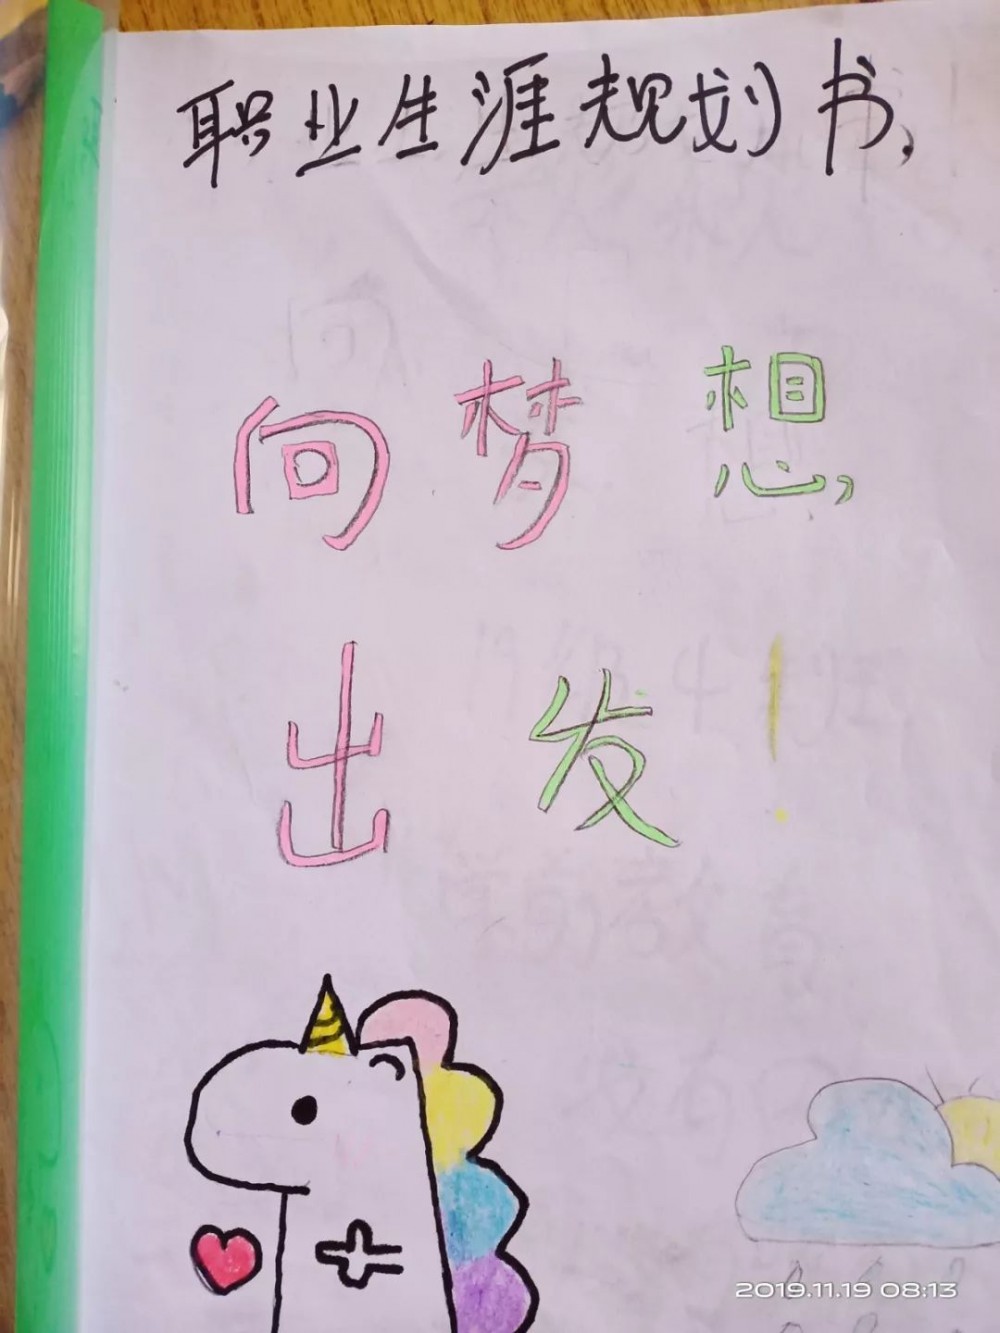 职业生涯规划书,
向梦想,
出发!
2019.11.19 08:13